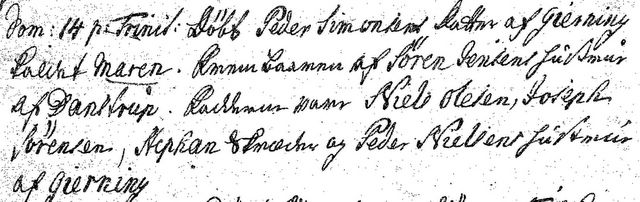 Dom: 14 p: Trinit: Döbt Peder Simonsens Datter af Gierning
kaldet Maren. Frembaaren af Sören Jensens Hustrue
af Danstrup. Fadderne vare Niels Olesen, Joseph
Sörensen, Stephan Skræder og Peder Nielsens Hustrue
af Gierning